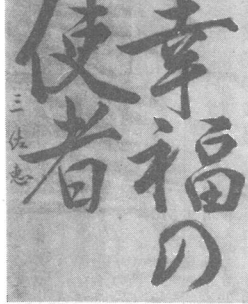 幸福の
使者
三佐恵